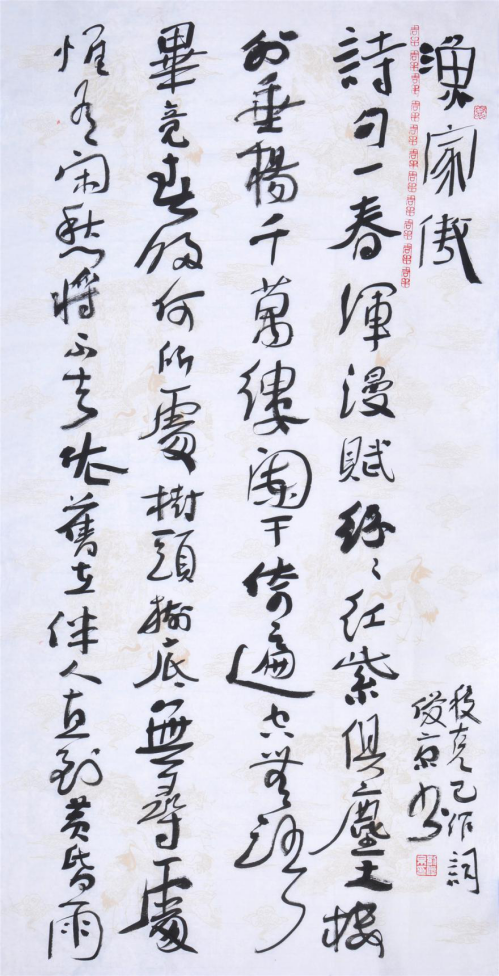 漁家傲
詩句一春渾漫賦紛〻紅紫俱塵土樓
外垂楊千萬縷闌干倚遍空無語
畢竟春歸何所處樹頭樹底無尋處
惟有閑愁將不去依舊在伴人直到黃昏雨
段克己作詞
俊京书